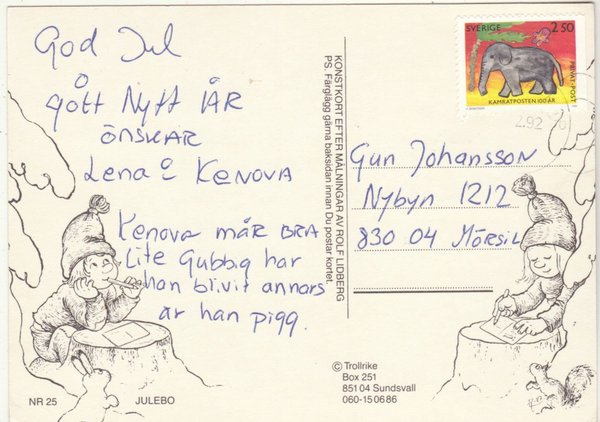 God Jul
å
gott Nytt ÅR
ÖNSKAR
Lena & KENOVA
Kenova MÅR BRA
Lite Gubbig har
han blivit annars
är han pigg.
KONSTKORT EFTER MÅLNINGAR AV ROLF LIDBERG
PS. Färglägg gärna baksidan innan Du postar kortet.
SVERIGE 2.50
PRIVAT·POST
KAMRATPOSTEN 100 ÅR
2.92
Gun Johansson
Nybyn 1212
830 04 Mörsil
© Trollrike
Box 251
851 04 Sundsvall
060-15 06 86
NR 25 JULEBO